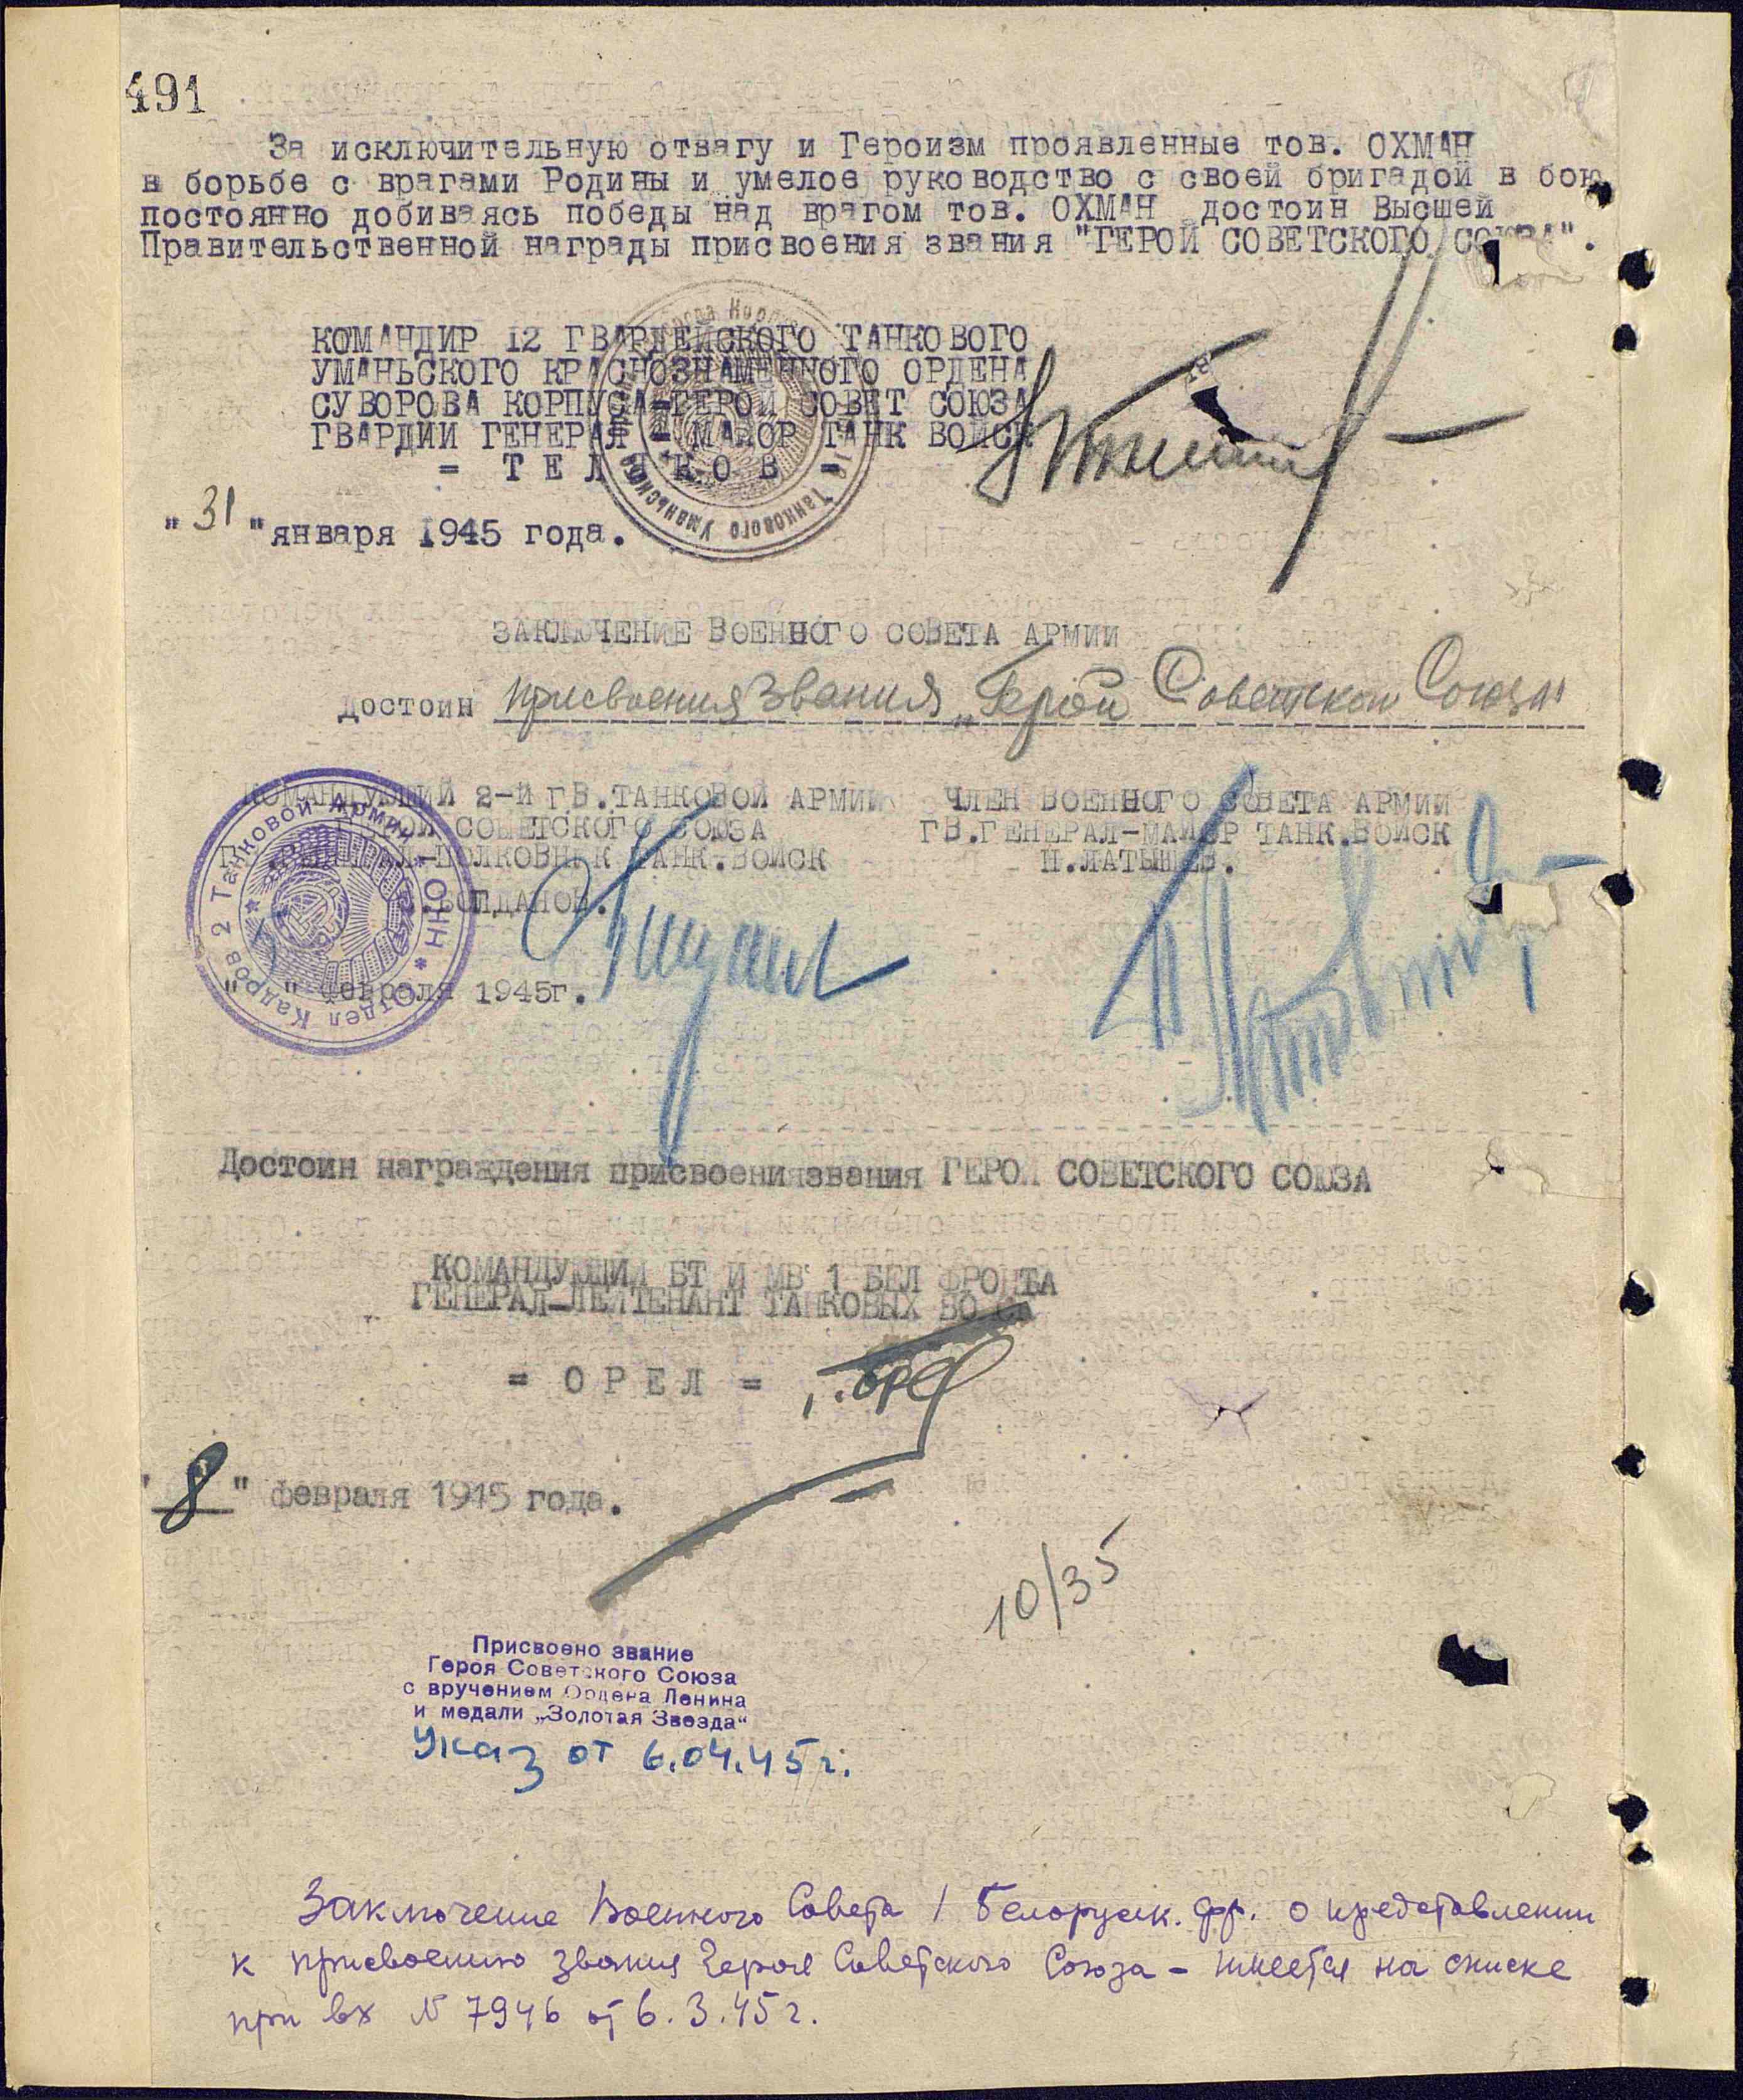 491
За исключительную отвагу и Героизм проявленные тов. ОХМАН
в борьбе с врагами Родины и умелое руководство с своей бригадой в бою
постоянно добиваясь победы над врагом тов. ОХМАН достоин Высшей
Правительственной награды присвоения звания "ГЕРОЙ СОВЕТСКОГО СОЮЗА".
КОМАНДИР 12 ГВАРДЕЙСКОГО ТАНКОВОГО
УМАНЬСКОГО КРАСНОЗНАМЕННОГО ОРДЕНА
СУВОРОВА КОРПУСА-ГЕРОЙ СОВЕТ СОЮЗА
ГВАРДИИ ГЕНЕРАЛ - МАЙОР ТАНК ВОЙСК
= ТЕЛЯКОВ =
"31" января 1945 года.
ЗАКЛЮЧЕНИЕ ВОЕННОГО СОВЕТА АРМИИ
достоин присвоения звания „Герой Советскои Союза"
КОМАНДУЮЩИЙ 2-й ГВ.ТАНКОВОЙ АРМИИ
ГЕРОЙ СОВЕТСКОГО СОЮЗА
ГЕНЕРАЛ-ПОЛКОВНИК ТАНК.ВОЙСК
БОГДАНОВ.
ЧЛЕН ВОЕННОГО СОВЕТА АРМИИ
ГВ.ГЕНЕРАЛ-МАЙОР ТАНК.ВОЙСК
П.ЛАТЫШЕВ.
Отдел Кадров 2 Танковой Армии * НКО *
" " февраля 1945г.
Достоин награждения присвоениязвания ГЕРОЙ СОВЕТСКОГО СОЮЗА
КОМАНДУЮЩИЙ БТ И МВ 1 БЕЛ ФРОНТА
ГЕНЕРАЛ-ЛЕЙТЕНАНТ ТАНКОВЫХ ВОЙСК
= ОРЕЛ =
"8" февраля 1945 года.
10/35
Присвоено звание
Героя Советского Союза
с вручением Ордена Ленина
и медали „Золотая Звезда"
Указ от 6.04.45г.
Заключение Военного Совета 1 Белорусск. фр. о представлении
к присвоению звания Героя Советского Союза - имеется на списке
при вх N 7946 от 6.3.45г.